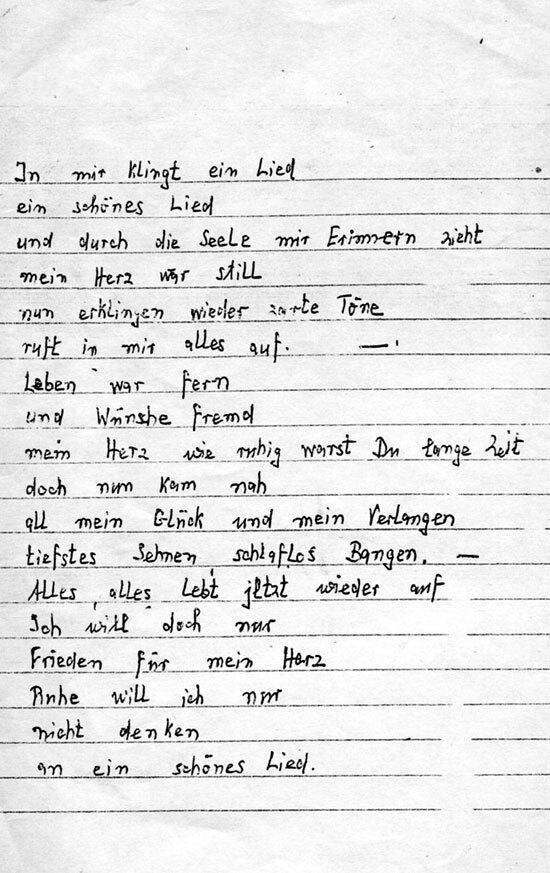 In mir klingt ein Lied
ein schönes Lied
und durch die Seele mir Erinnern zieht
mein Herz war still
nun erklingen wieder zarte Töne
ruft in mir alles auf. —.
Leben war fern
und Wünshe fremd
mein Herz wie ruhig warst Du lange Zeit
doch nun kam nah
all mein Glück und mein Verlangen
tiefstes Sehnen, schlaflos Bangen. —
Alles, alles Lebt jetzt wieder auf
Ich will doch nur
Frieden für mein Herz
Ruhe will ich nur
nicht denken
an ein schönes Lied.